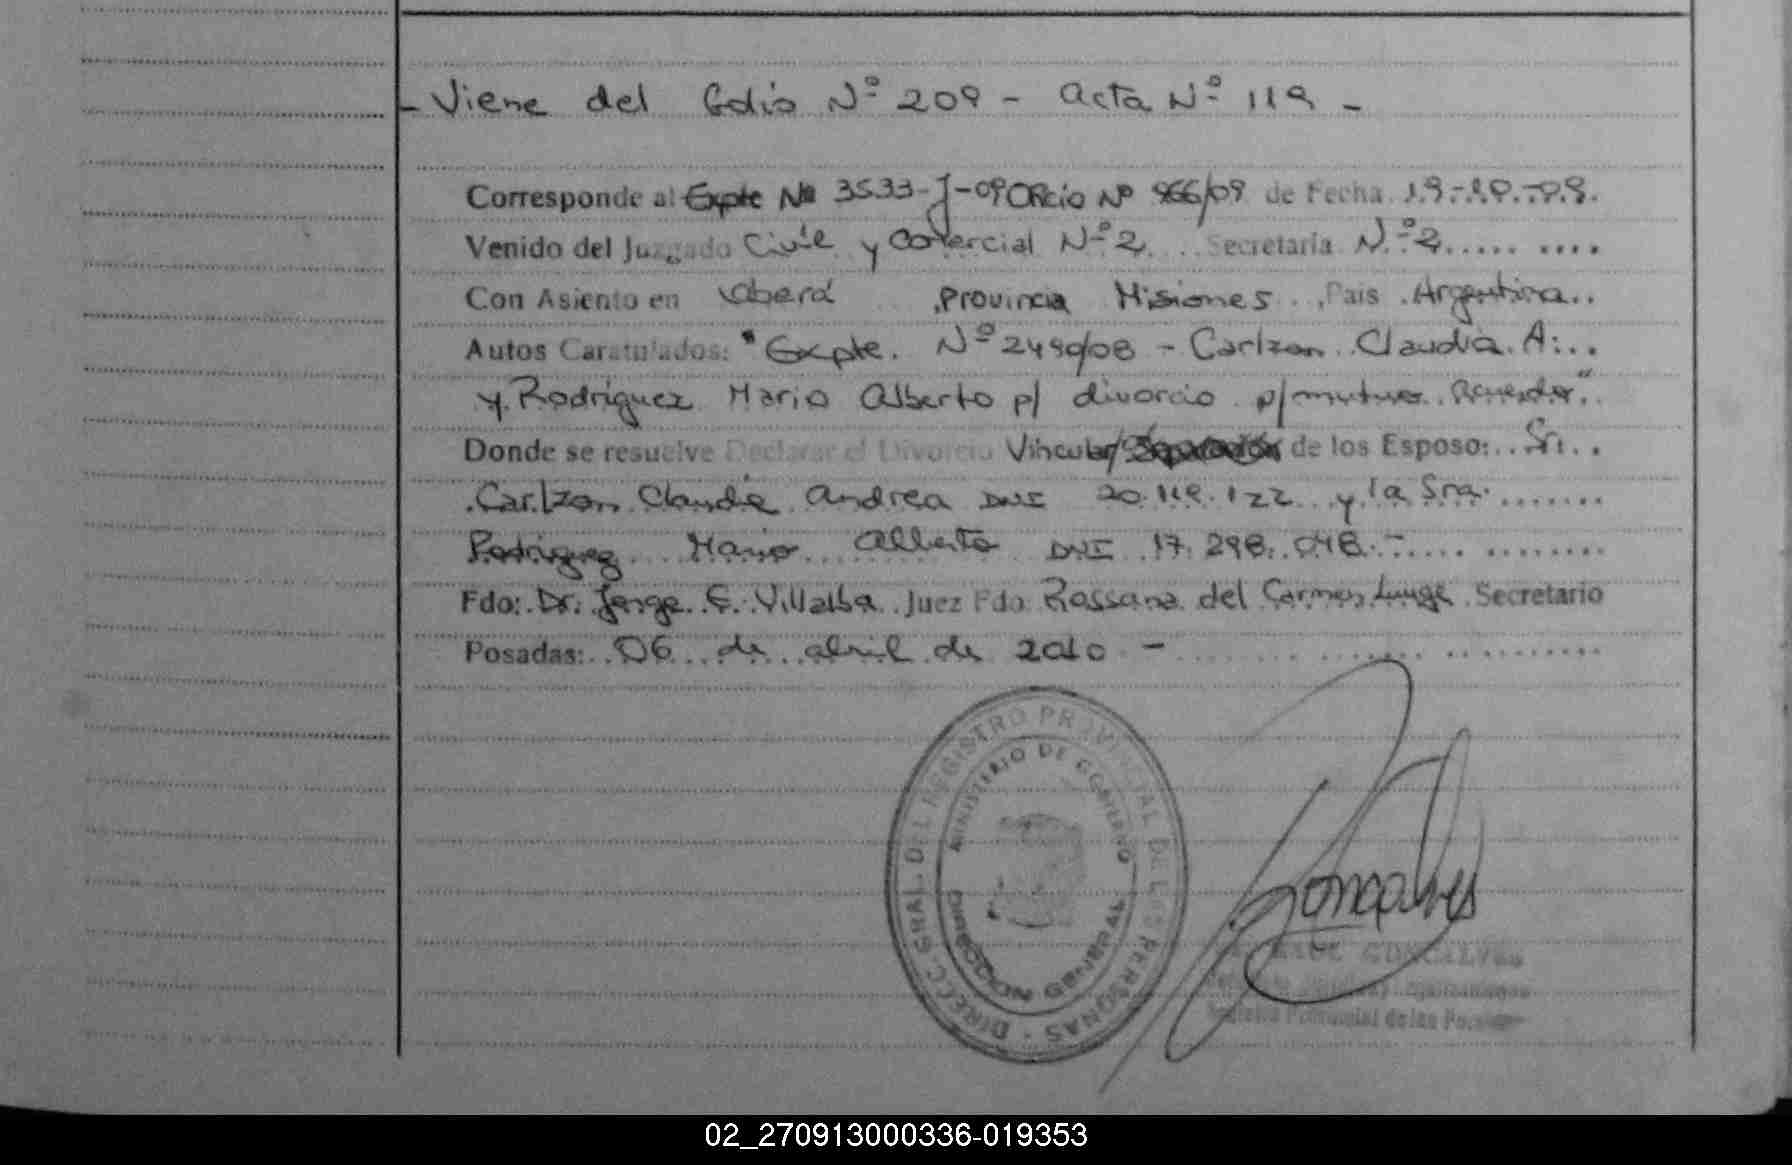 - Viene del Folio Nº 209 - Acta Nº 119 -
Corresponde al Expte Nº 3533-J-09 Oficio Nº 966/09 de Fecha 19-10-09.
Venido del Juzgado Civil y Comercial Nº 2 Secretaría Nº 2
Con Asiento en Oberá Provincia Misiones País Argentina
Autos Caratulados: "Expte. Nº 2490/08 - Carlzon Claudia A.
y Rodriguez Mario Alberto p/ divorcio p/ mutuo acuerdo"
Donde se resuelve Declarar el Divorcio Vincular/ de los Esposo: Sr.
Carlzon Claudia Andrea DNI 20.119.122 y la Sra.
Rodriguez Mario Alberto DNI 17.298.048.-
Fdo: Dr. Jorge E. Villalba Juez Fdo Rossana del Carmen Secretario
Posadas: 06 de abril de 2010 -
DIRECC. GRAL. DEL REGISTRO PROVINCIAL DE LAS PERSONAS
MINISTERIO DE GOBIERNO
DIRECCION GENERAL
Goncalves
GONCALVES
Registro Provincial de las
02_270913000336-019353